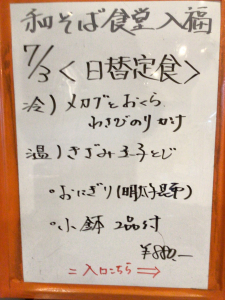 和そば食堂 入福
7/3 <日替定食>
冷) メカブとおくら
わさびのりかけ
温) きざみ玉子とじ
・おにぎり(明太子昆布)
・小鉢 2品付
¥880.-
入口こちら⇒